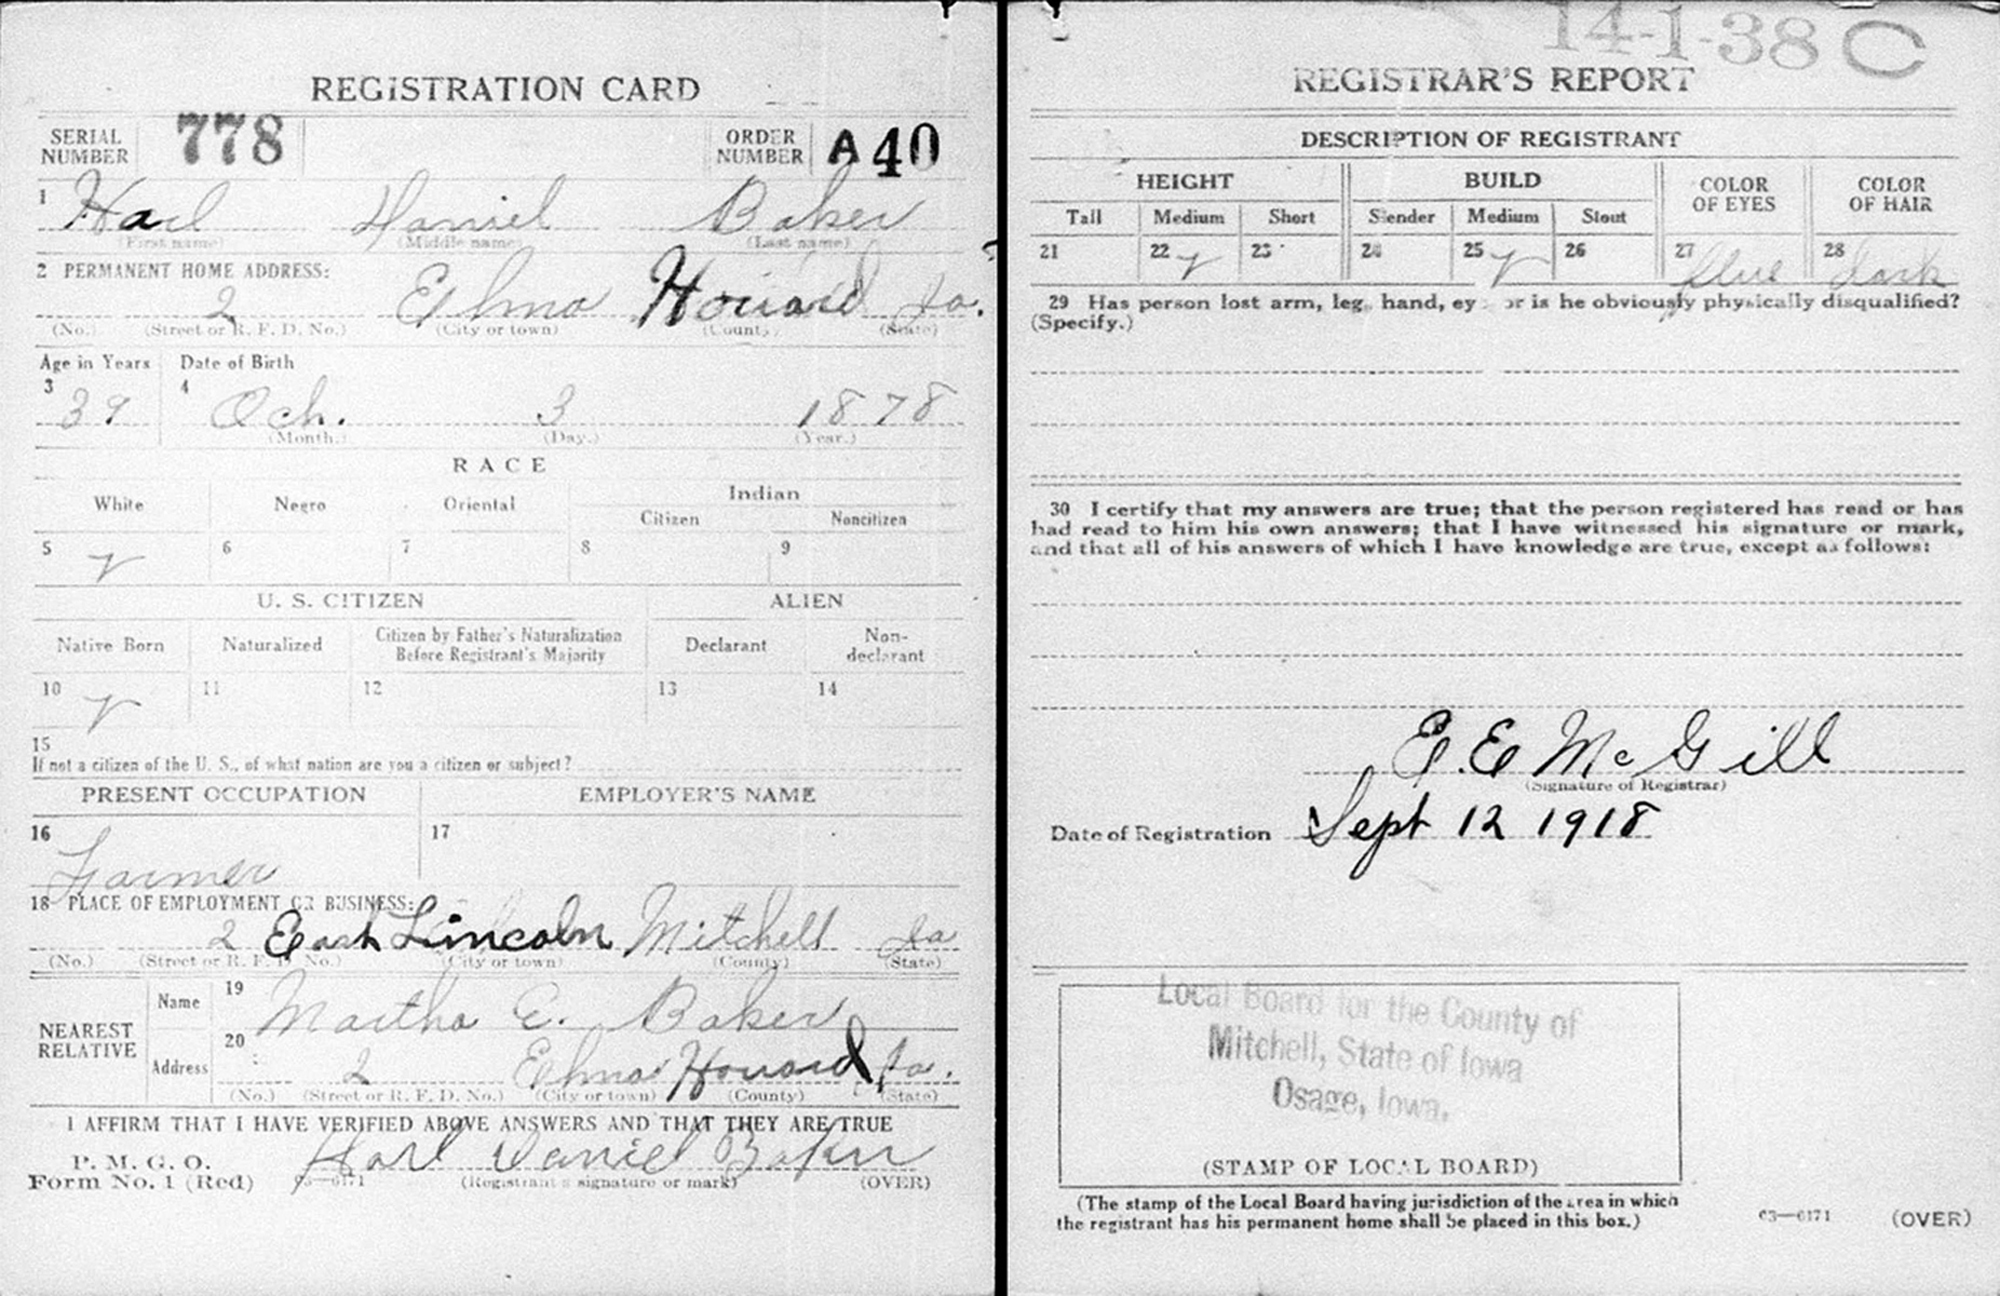 REGISTRATION CARD
SERIAL NUMBER 778 ORDER NUMBER A 40
1 Harl Daniel Baker
(First name) (Middle name) (Last name)
2 PERMANENT HOME ADDRESS:
2 Elma Howard Ia.
(No.) (Street or R. F. D. No.) (City or town) (County) (State)
Age in Years Date of Birth
3 39 4 Oct. 3 1878
(Month.) (Day.) (Year.)
RACE
White Negro Oriental Indian
Citizen Noncitizen
5 6 7 8 9
U. S. CITIZEN ALIEN
Native Born Naturalized Citizen by Father's Naturalization Before Registrant's Majority Declarant Non-declarant
10 11 12 13 14
15
If not a citizen of the U. S., of what nation are you a citizen or subject?
PRESENT OCCUPATION EMPLOYER'S NAME
16 Farmer 17
18 PLACE OF EMPLOYMENT OR BUSINESS:
2 East Lincoln Mitchell Ia
(No.) (Street or R. F. D. No.) (City or town) (County) (State)
NEAREST RELATIVE Name 19 Martha E. Baker
Address 20 2 Elma Howard Ia.
(No.) (Street or R. F. D. No.) (City or town) (County) (State)
I AFFIRM THAT I HAVE VERIFIED ABOVE ANSWERS AND THAT THEY ARE TRUE
P. M. G. O.
Form No. 1 (Red) 03—6171 Harl Daniel Baker
(Registrant's signature or mark) (OVER)
14-1-38 C
REGISTRAR'S REPORT
DESCRIPTION OF REGISTRANT
HEIGHT BUILD COLOR OF EYES COLOR OF HAIR
Tall Medium Short Slender Medium Stout
21 22 23 24 25 26 27 Blue 28 dark
29 Has person lost arm, leg, hand, eye, or is he obviously physically disqualified?
(Specify.)
30 I certify that my answers are true; that the person registered has read or has
had read to him his own answers; that I have witnessed his signature or mark,
and that all of his answers of which I have knowledge are true, except as follows:
E. E McGill
(Signature of Registrar)
Date of Registration Sept 12 1918
Local Board for the County of
Mitchell, State of Iowa
Osage, Iowa.
(STAMP OF LOCAL BOARD)
(The stamp of the Local Board having jurisdiction of the area in which
the registrant has his permanent home shall be placed in this box.)
03—6171 (OVER)